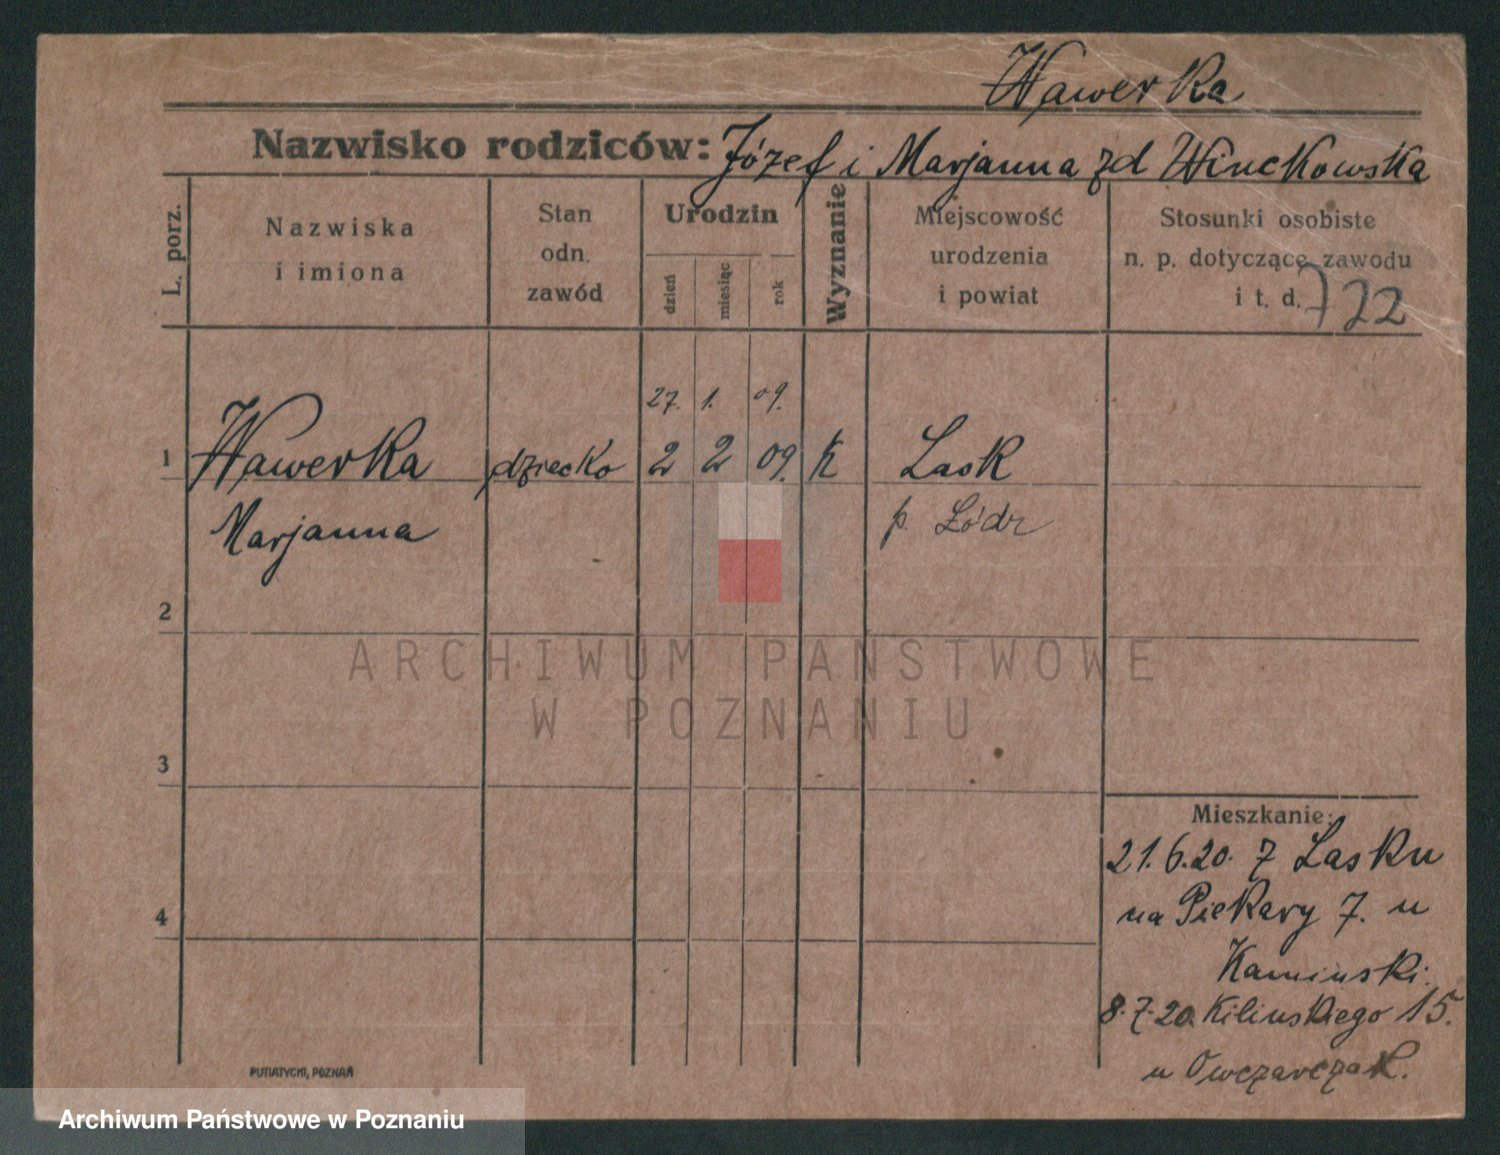 Wawerka
Nazwisko rodziców: Józef i Marjanna zd Winckowska
L. porz.
Nazwiska
i imiona
Stan
odn.
zawód
Urodzin
dzień
miesiąc
rok
Wyznanie
Miejscowość
urodzenia
i powiat
Stosunki osobiste
n. p. dotyczące zawodu
i t. d. 722
27. 1. 09.
1 Wawerka dziecko 2 2 09. k Lask
Marjanna p. Łódz
2
3
4
ARCHIWUM PAŃSTWOWE
W POZNANIU
Mieszkanie:
21.6.20. z Lasku
na Piekary 7. u
Kaminski.
8.7.20. Kilinskiego 15.
u Owczarczak.
PUTIATYCKI, POZNAŃ
Archiwum Państwowe w Poznaniu